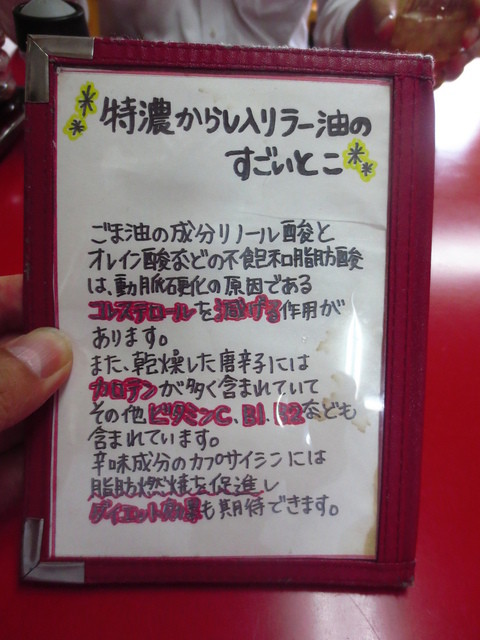 特濃からし入りラー油の
すごいとこ
ごま油の成分リノール酸と
オレイン酸などの不飽和脂肪酸
は、動脈硬化の原因である
コレステロールを減げる作用が
あります。
また、乾燥した唐辛子には
カロテンが多く含まれていて
その他ビタミンC、B1、B2なども
含まれています。
辛味成分のカプサイシンには
脂肪燃焼を促進し
ダイエット効果も期待できます。